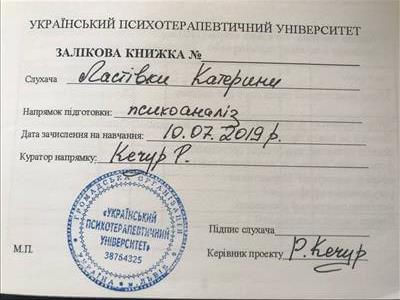 УКРАЇНСЬКИЙ ПСИХОТЕРАПЕВТИЧНИЙ УНІВЕРСИТЕТ
ЗАЛІКОВА КНИЖКА №
Слухача Ластівки Катерини
Напрямок підготовки: психоаналіз
Дата зачислення на навчання: 10.07.2019 р.
Куратор напрямку: Кечур Р.
ГРОМАДСЬКА ОРГАНІЗАЦІЯ
«УКРАЇНСЬКИЙ
ПСИХОТЕРАПЕВТИЧНИЙ
УНІВЕРСИТЕТ»
38764325
УКРАЇНА м. ЛЬВІВ
Підпис слухача
М.П.
Керівник проекту Р. Кечур